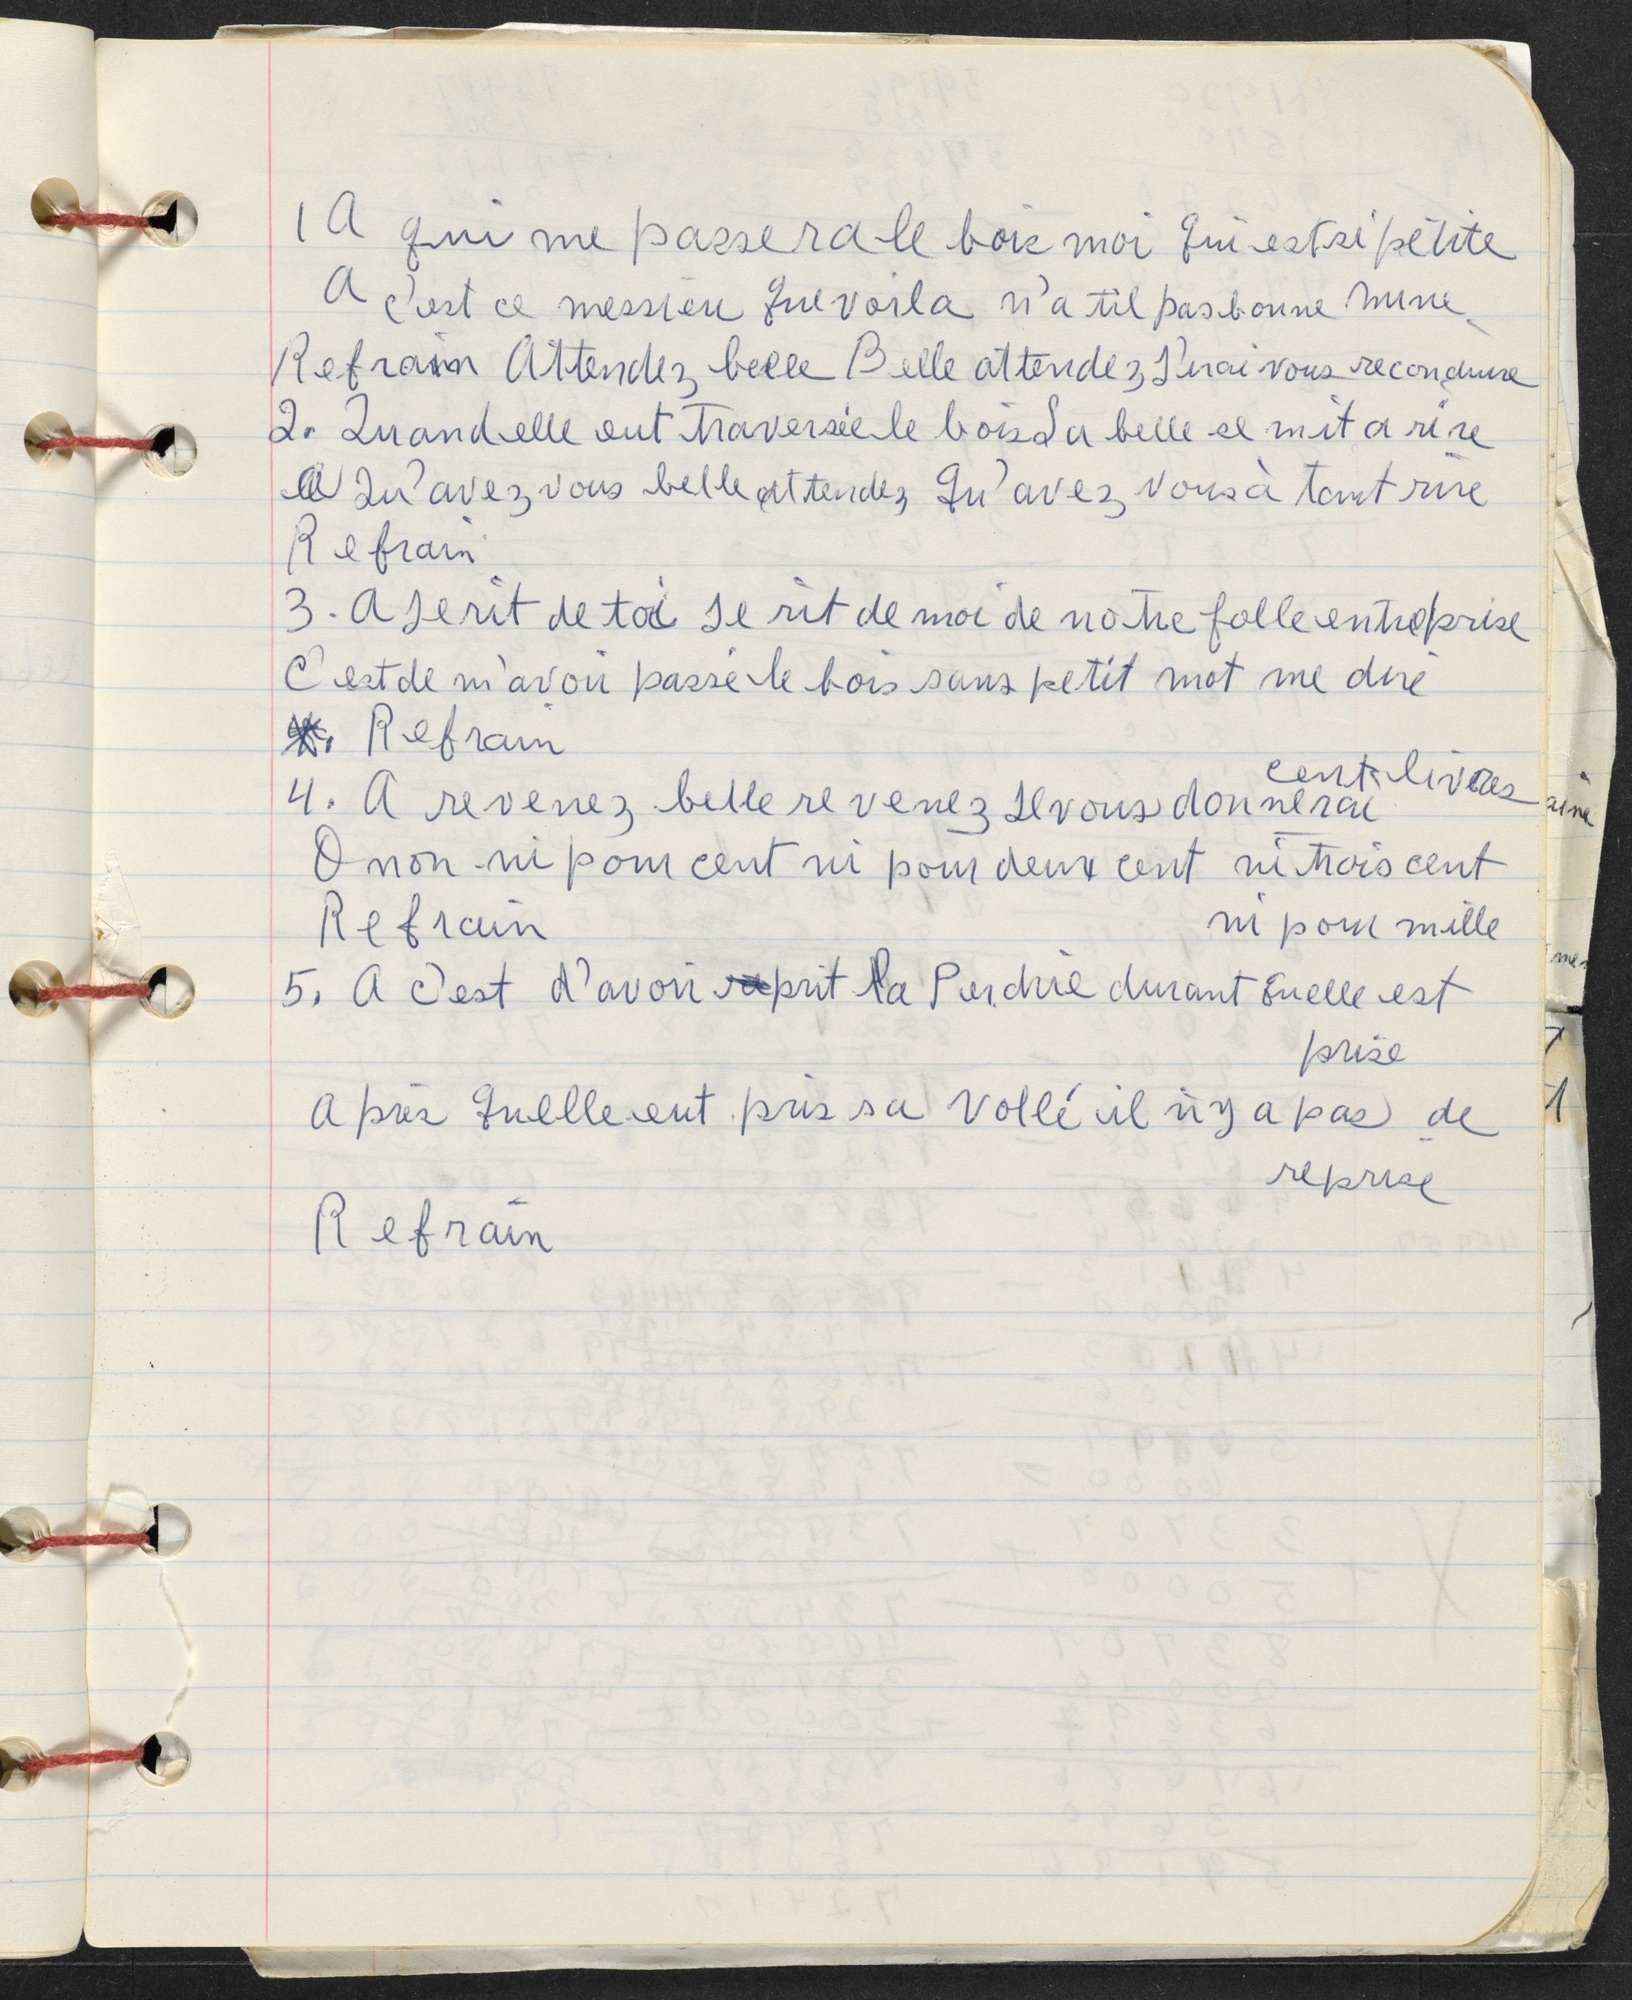 1 A qui me passera le bois moi qui est si petite
A c'est ce messieu que voila n'a til pas bonne mine
Refrain Attendez belle Belle attendez J'irai vous reconduire
2. Quand elle eut traversée le bois La belle se mit a rire
A Qu'avez vous belle attendez Qu'avez vous à tant rire
Refrain
3. A Je rit de toi Je rit de moi de notre folle entreprise
C'est de m'avoir passé le bois sans petit mot me dire
Refrain
cent livres
4. A revenez belle revenez Je vous donnerai
O non ni pour cent ni pour deux cent ni trois cent
Refrain ni pour mille
5. A c'est d'avoir prit la Perdrie durant quelle est
prise
Après quelle eut pris sa vollé il n'y a pas de
reprise
Refrain